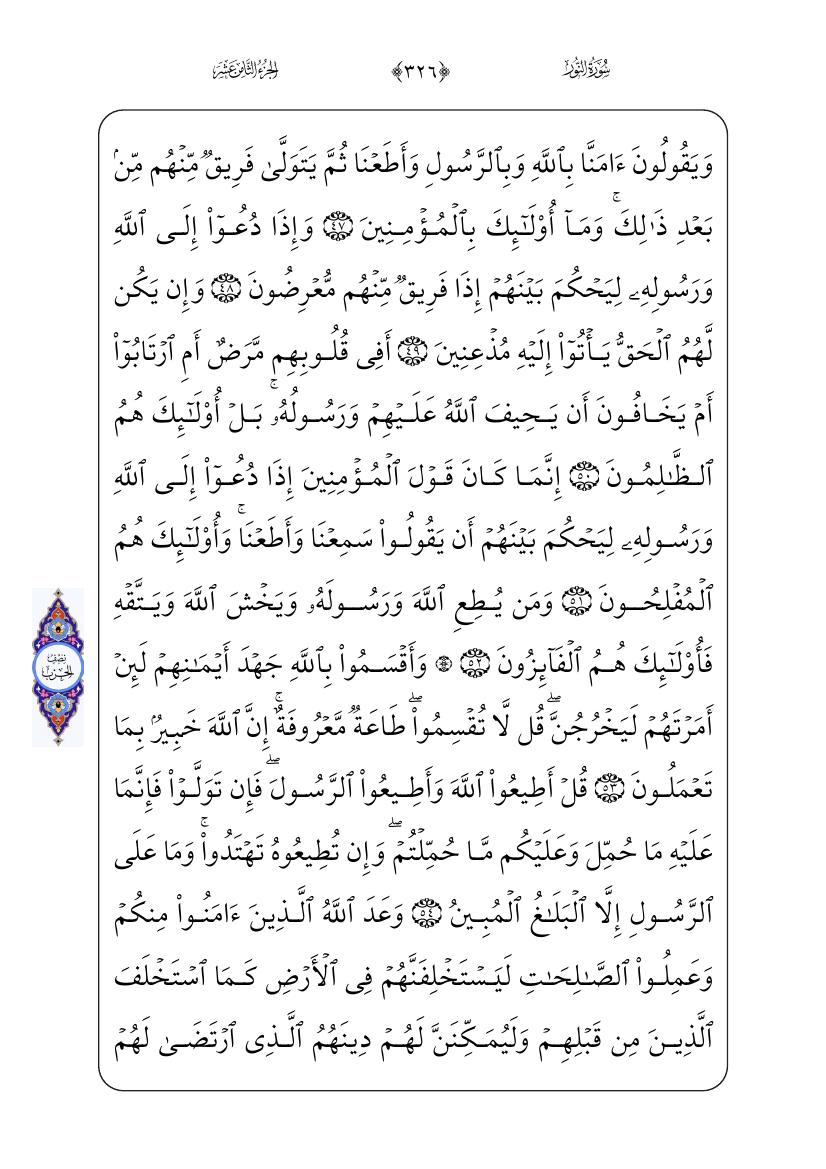 سُورَةُ النُّور
﴿٣٢٦﴾
الجُزءُ الثَّامِنَ عَشَرَ
وَيَقُولُونَ ءَامَنَّا بِٱللَّهِ وَبِٱلرَّسُولِ وَأَطَعۡنَا ثُمَّ يَتَوَلَّىٰ فَرِيقٞ مِّنۡهُم مِّنۢ
بَعۡدِ ذَٰلِكَۚ وَمَآ أُوْلَٰٓئِكَ بِٱلۡمُؤۡمِنِينَ ٤٧ وَإِذَا دُعُوٓاْ إِلَى ٱللَّهِ
وَرَسُولِهِۦ لِيَحۡكُمَ بَيۡنَهُمۡ إِذَا فَرِيقٞ مِّنۡهُم مُّعۡرِضُونَ ٤٨ وَإِن يَكُن
لَّهُمُ ٱلۡحَقُّ يَأۡتُوٓاْ إِلَيۡهِ مُذۡعِنِينَ ٤٩ أَفِي قُلُوبِهِم مَّرَضٌ أَمِ ٱرۡتَابُوٓاْ
أَمۡ يَخَافُونَ أَن يَحِيفَ ٱللَّهُ عَلَيۡهِمۡ وَرَسُولُهُۥۚ بَلۡ أُوْلَٰٓئِكَ هُمُ
ٱلظَّٰلِمُونَ ٥٠ إِنَّمَا كَانَ قَوۡلَ ٱلۡمُؤۡمِنِينَ إِذَا دُعُوٓاْ إِلَى ٱللَّهِ
وَرَسُولِهِۦ لِيَحۡكُمَ بَيۡنَهُمۡ أَن يَقُولُواْ سَمِعۡنَا وَأَطَعۡنَاۚ وَأُوْلَٰٓئِكَ هُمُ
ٱلۡمُفۡلِحُونَ ٥١ وَمَن يُطِعِ ٱللَّهَ وَرَسُولَهُۥ وَيَخۡشَ ٱللَّهَ وَيَتَّقۡهِ
فَأُوْلَٰٓئِكَ هُمُ ٱلۡفَآئِزُونَ ٥٢ ۞ وَأَقۡسَمُواْ بِٱللَّهِ جَهۡدَ أَيۡمَٰنِهِمۡ لَئِنۡ
نِصۡفُ الحِزۡب
أَمَرۡتَهُمۡ لَيَخۡرُجُنَّۖ قُل لَّا تُقۡسِمُواْۖ طَاعَةٞ مَّعۡرُوفَةٌۚ إِنَّ ٱللَّهَ خَبِيرُۢ بِمَا
تَعۡمَلُونَ ٥٣ قُلۡ أَطِيعُواْ ٱللَّهَ وَأَطِيعُواْ ٱلرَّسُولَۖ فَإِن تَوَلَّوۡاْ فَإِنَّمَا
عَلَيۡهِ مَا حُمِّلَ وَعَلَيۡكُم مَّا حُمِّلۡتُمۡۖ وَإِن تُطِيعُوهُ تَهۡتَدُواْۚ وَمَا عَلَى
ٱلرَّسُولِ إِلَّا ٱلۡبَلَٰغُ ٱلۡمُبِينُ ٥٤ وَعَدَ ٱللَّهُ ٱلَّذِينَ ءَامَنُواْ مِنكُمۡ
وَعَمِلُواْ ٱلصَّٰلِحَٰتِ لَيَسۡتَخۡلِفَنَّهُمۡ فِي ٱلۡأَرۡضِ كَمَا ٱسۡتَخۡلَفَ
ٱلَّذِينَ مِن قَبۡلِهِمۡ وَلَيُمَكِّنَنَّ لَهُمۡ دِينَهُمُ ٱلَّذِي ٱرۡتَضَىٰ لَهُمۡ